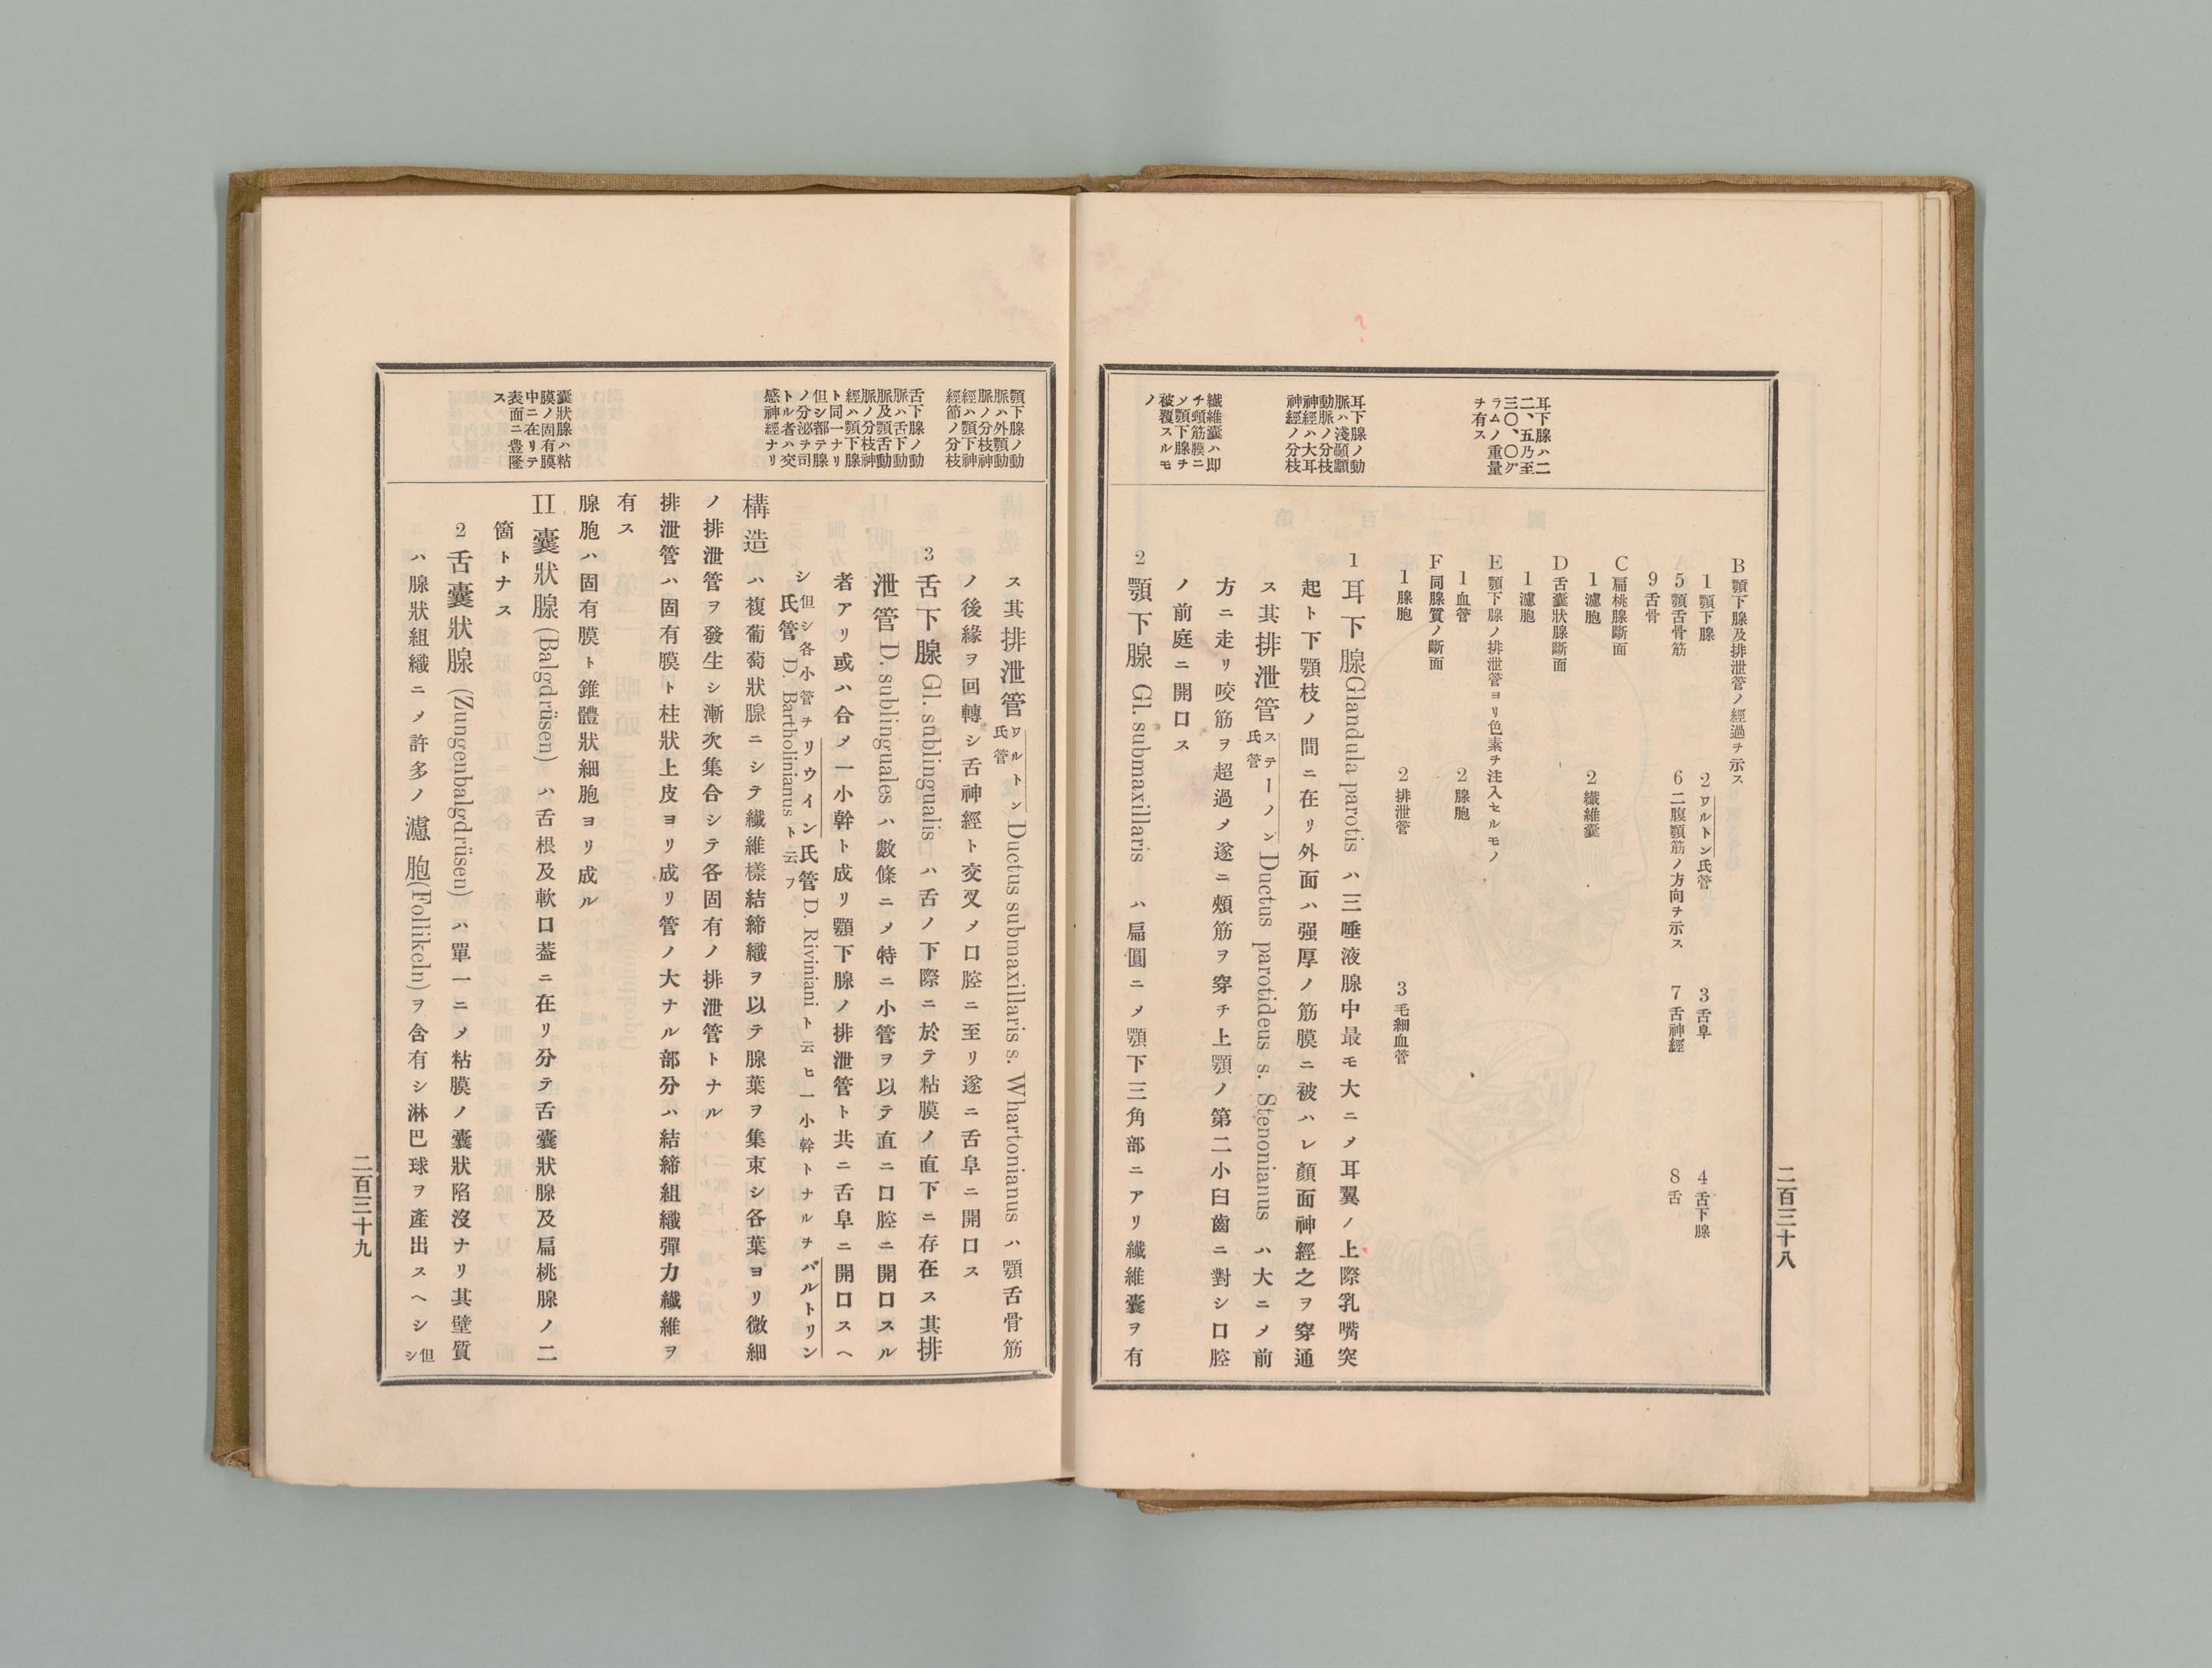 二百三十八
耳下腺ハ二
二、五乃至
三〇、〇グ
ラムノ重量
チ有ス
耳下腺ノ動
脈ハ淺顳顬
動脈ノ分枝
神經ハ大耳
神經ノ分枝
纖維囊ハ即
チ頸筋膜ニ
ソ顎下腺チ
被覆スルモ
ノ
B 顎下腺及排泄管ノ經過チ示ス
1 顎下腺 2 ワルトン氏管 3 舌阜 4 舌下腺
5 顎舌骨筋 6 二腹顎筋ノ方向チ示ス 7 舌神經 8 舌
9 舌骨
C 扁桃腺斷面
1 濾胞 2 纖維囊
D 舌囊狀腺斷面
1 濾胞
E 顎下腺ノ排泄管ヨリ色素チ注入セルモノ
1 血管 2 腺胞
F 同腺質ノ斷面
1 腺胞 2 排泄管 3 毛細血管
1 耳下腺 Glandula parotis ハ三唾液腺中最モ大ニㄨ耳翼ノ上際乳嘴突
起ト下顎枝ノ間ニ在リ外面ハ强厚ノ筋膜ニ被ハレ顏面神經之ヲ穿通
ス其排泄管ステーノン氏管 Ductus parotideus s. Stenonianus ハ大ニㄨ前
方ニ走リ咬筋ヲ超過ㄨ遂ニ頰筋ヲ穿チ上顎ノ第二小臼齒ニ對シ口腔
ノ前庭ニ開口ス
2 顎下腺 Gl. submaxillaris ハ扁圓ニㄨ顎下三角部ニアリ纖維囊ヲ有
顎下腺ノ動
脈ハ外顎動
脈ノ分枝神
經ハ顎下神
經節ノ分枝
舌下腺ノ動
脈ハ舌下動
脈及顎舌動
脈ノ分枝神
經ハ顎下腺
ト同一ナリ
但シ都テ腺
ノ分泌チ司
トル者ハ交
感神經ナリ
囊狀腺ハ粘
膜ノ固有膜
中ニ在リテ
表面ニ豊隆
ス
ス其排泄管ワルトン氏管 Ductus submaxillaris s. Whartonianus ハ顎舌骨筋
ノ後緣ヲ回轉シ舌神經ト交叉ㄨ口腔ニ至リ遂ニ舌阜ニ開口ス
3 舌下腺 Gl. sublingualis ハ舌ノ下際ニ於テ粘膜ノ直下ニ存在ス其排
泄管 D. sublinguales ハ數條ニㄨ特ニ小管ヲ以テ直ニ口腔ニ開口スル
者アリ或ハ合ㄨ一小幹ト成リ顎下腺ノ排泄管ト共ニ舌阜ニ開口スヘ
シ但シ各小管チリウイン氏管 D. Riviniani ト云ヒ一小幹トナルチバルトリン
氏管 D. Bartholinianus ト云フ
構造 ハ複葡萄狀腺ニシテ纖維樣結締織ヲ以テ腺葉ヲ集束シ各葉ヨリ微細
ノ排泄管ヲ發生シ漸次集合シテ各固有ノ排泄管トナル
排泄管ハ固有膜ト柱狀上皮ヨリ成リ管ノ大ナル部分ハ結締組織彈力纖維ヲ
有ス
腺胞ハ固有膜ト錐體狀細胞ヨリ成ル
II 囊狀腺 (Balgdrüsen) ハ舌根及軟口葢ニ在リ分テ舌囊狀腺及扁桃腺ノ二
箇トナス
2 舌囊狀腺 (Zungenbalgdrüsen) ハ單一ニㄨ粘膜ノ囊狀陷沒ナリ其壁質
ハ腺狀組織ニㄨ許多ノ濾胞 (Follikeln) ヲ含有シ淋巴球ヲ產出スヘシ但シ
二百三十九